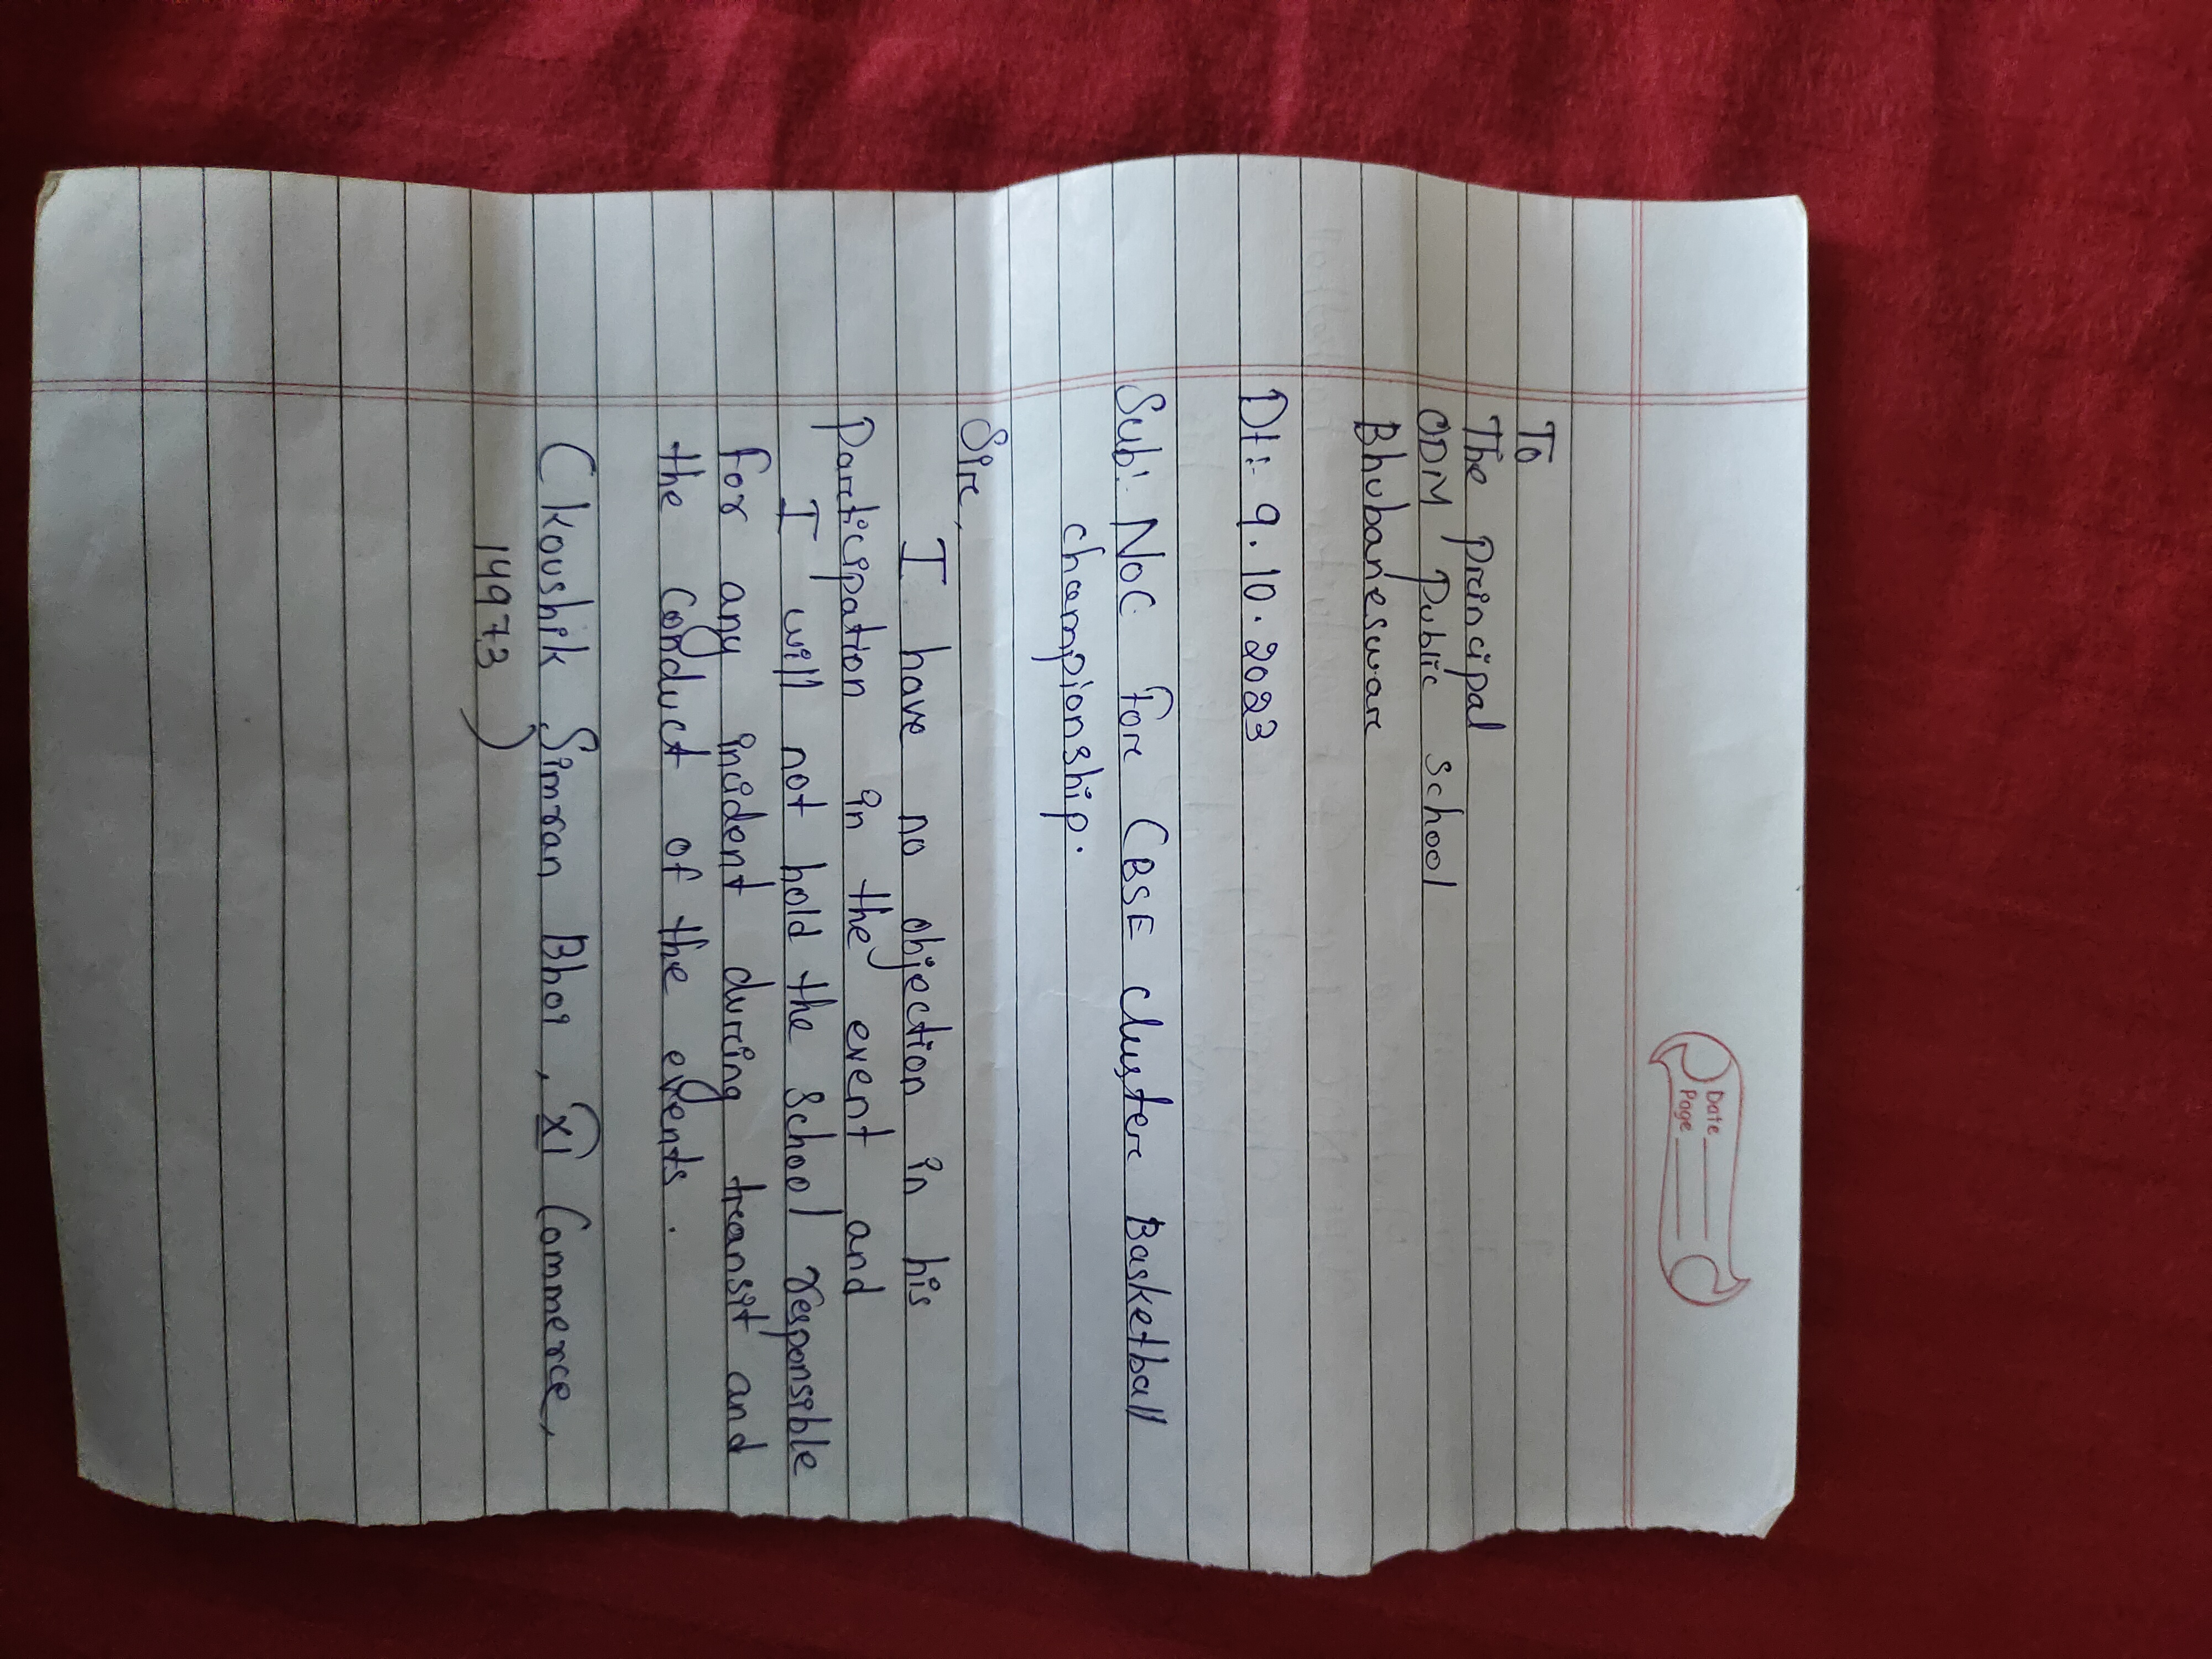 Date
Page
To
The Principal
ODM Public School
Bhubaneswar
Dt:- 9.10.2023
Sub:- NOC For CBSE cluster Basketball
championship.
Sir,
I have no objection in his
Participation in the event and
I will not hold the school responsible
for any incident during transit and
the conduct of the events.
(Koushik Simran Bhoi, XI Commerce,
14973)